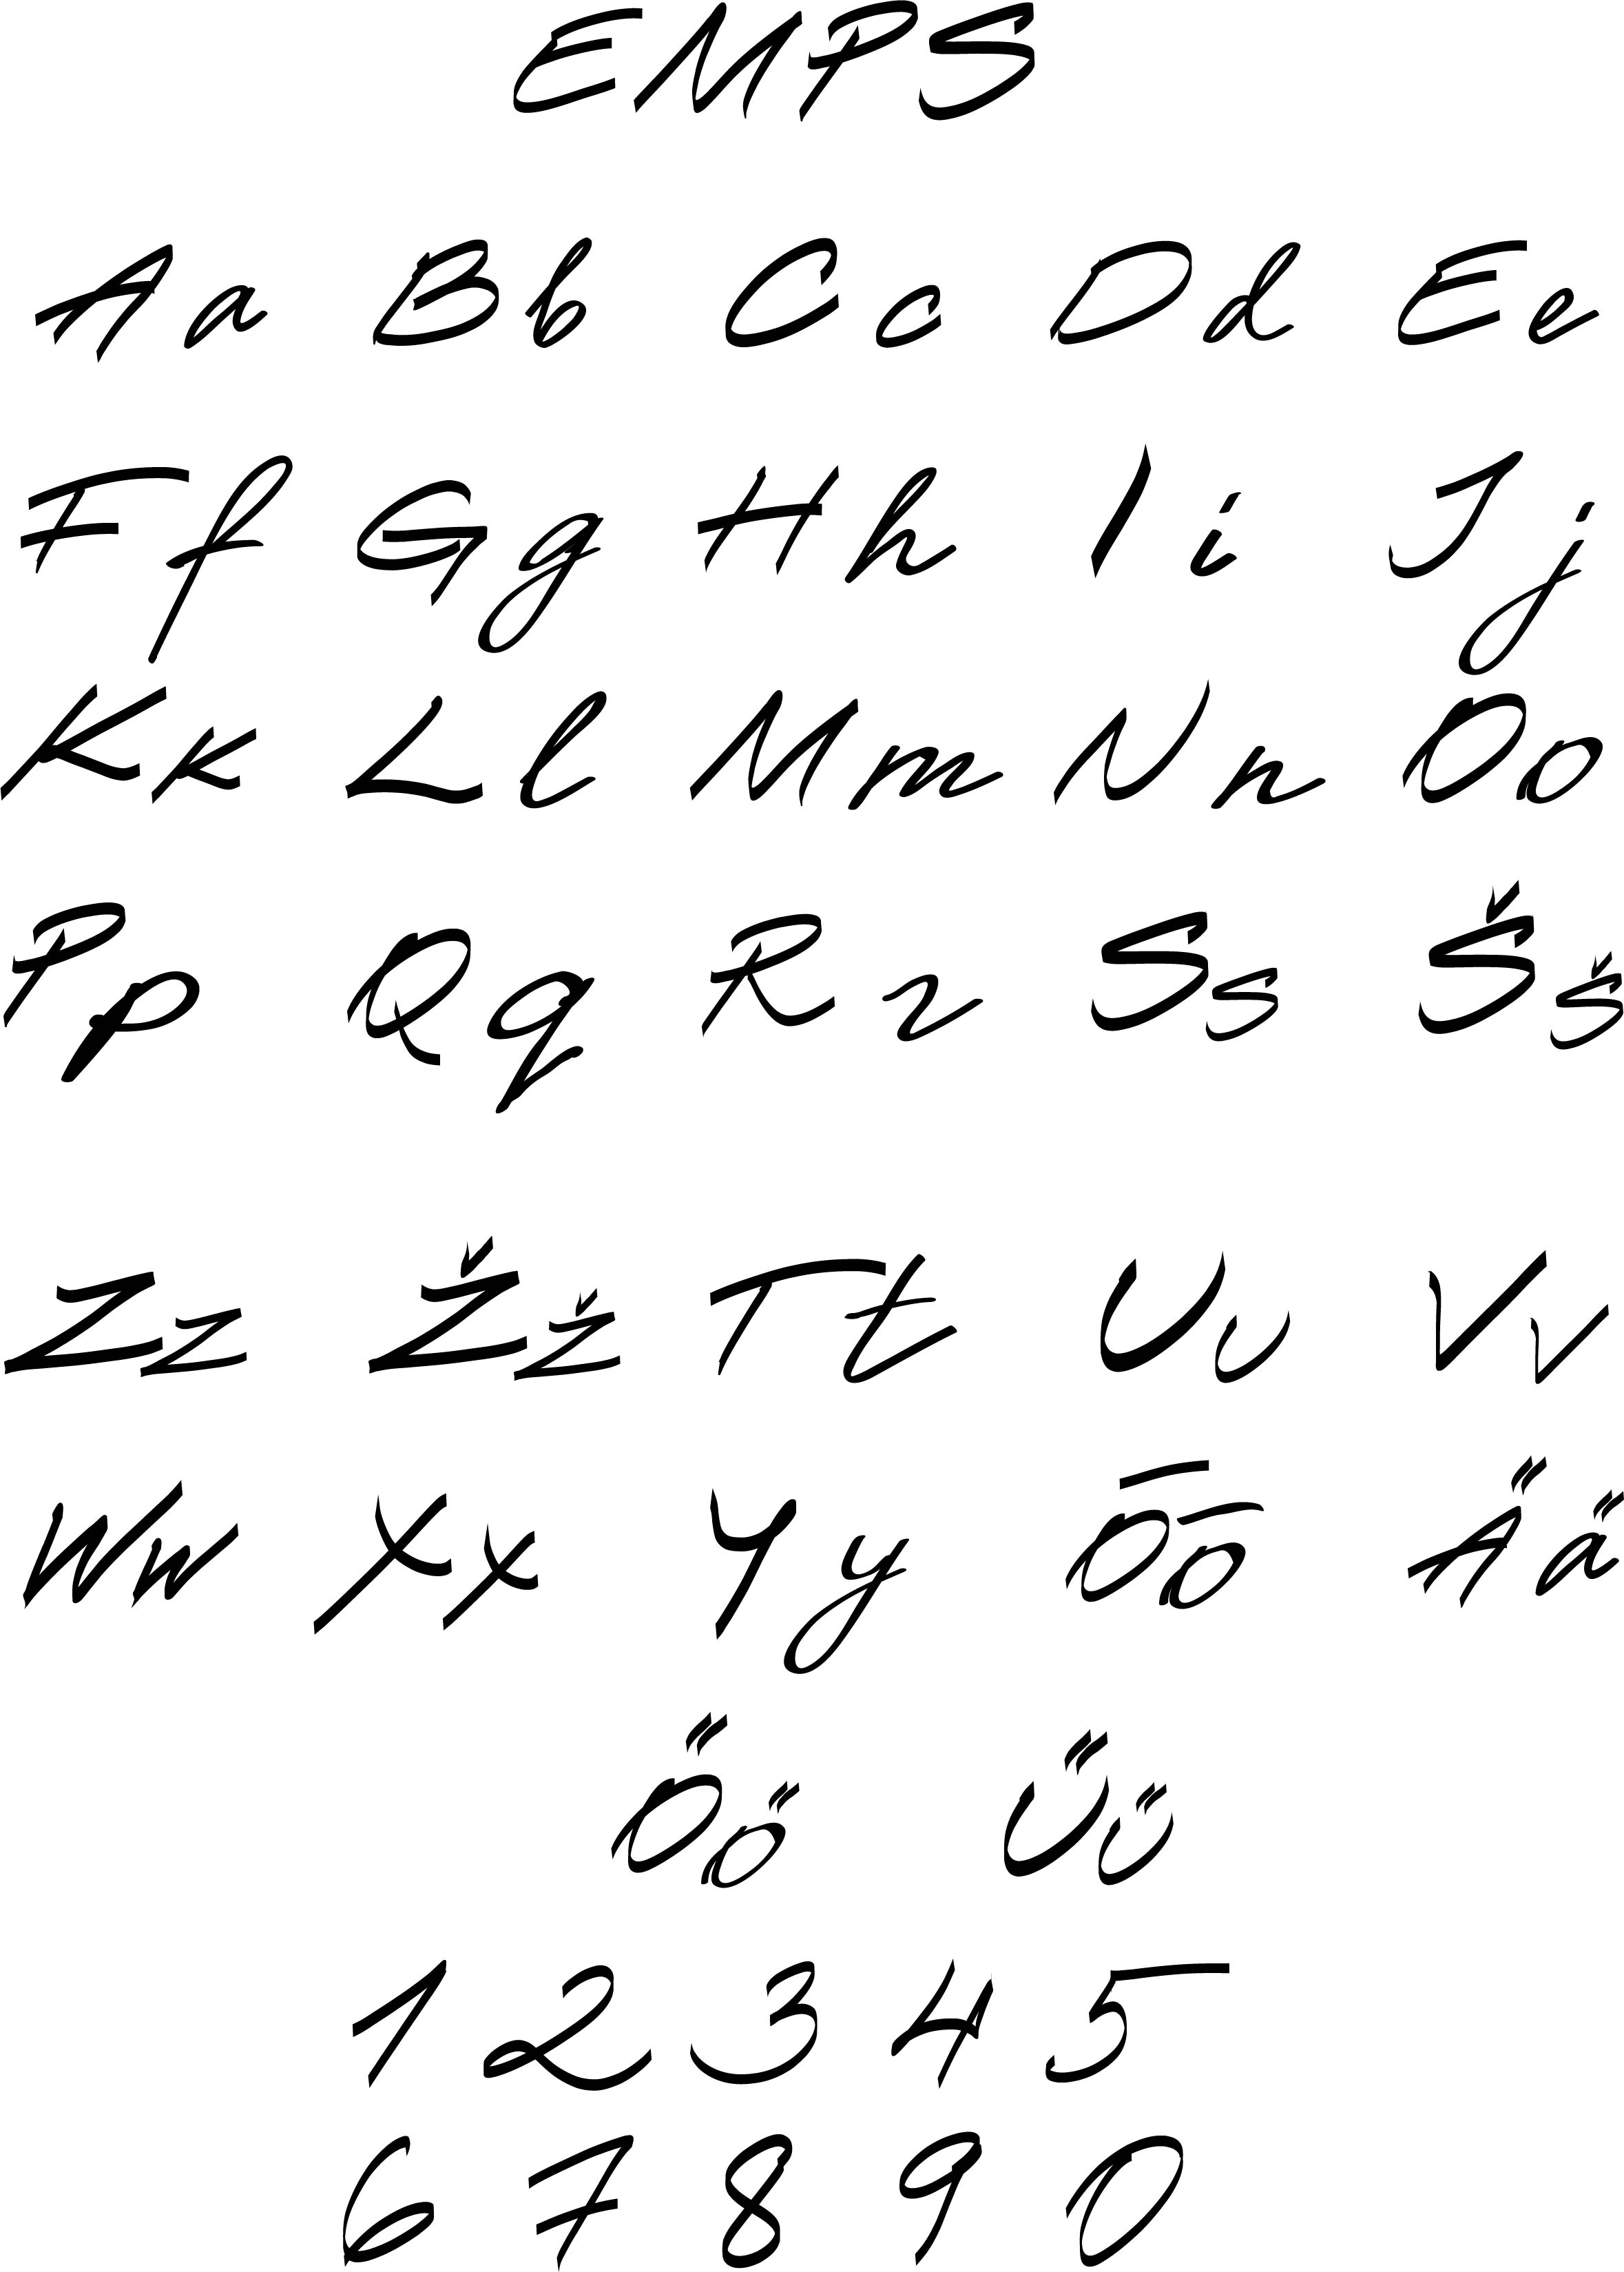 EMPS
Aa Bb Cc Dd Ee
Ff Gg Hh Ii Jj
Kk Ll Mm Nn Oo
Pp Qq Rr Ss Šš
Zz Žž Tt Uu Vv
Ww Xx Yy Õõ Ää
Öö Üü
1 2 3 4 5
6 7 8 9 0